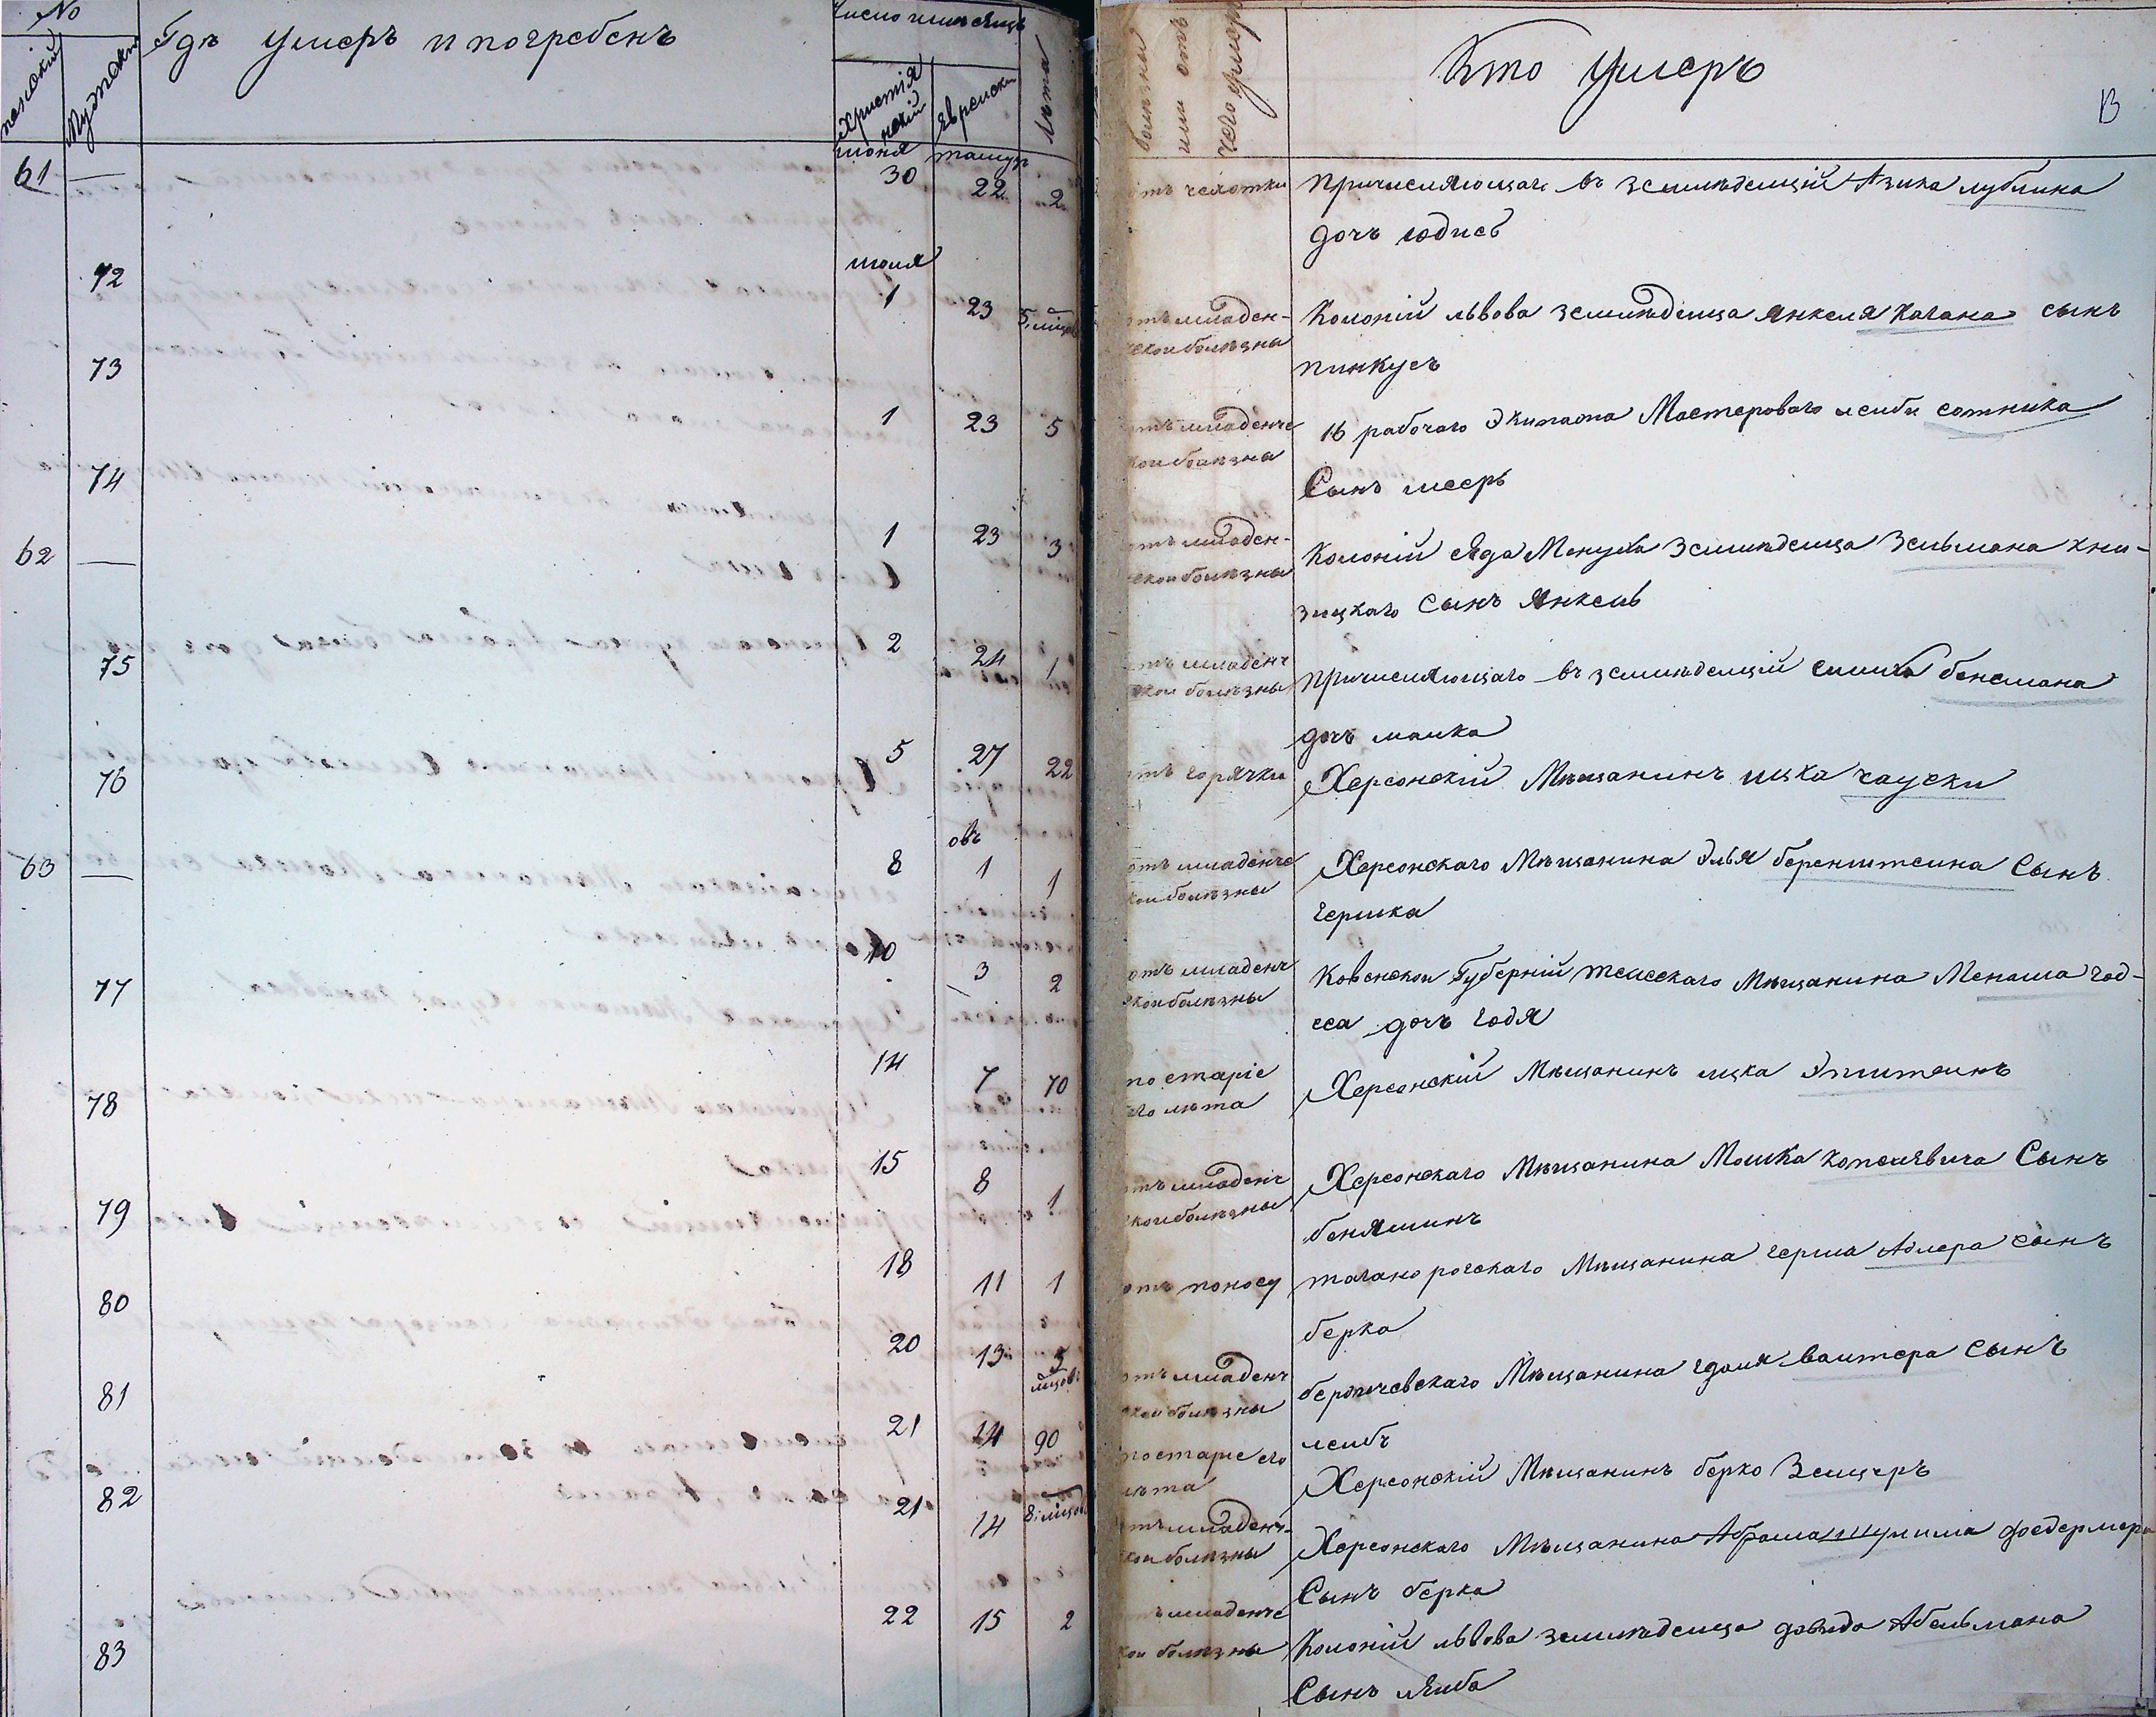 No
женский
Мужеский
Гдѣ умеръ и погребенъ
Число и мѣсяцъ
Христіянскій
Еврейски
Лѣта
болѣзны или отъ чего умеръ
Кто умеръ
13
61 —
июня 30
тамузъ 22
2
отъ чехотки
причисляющаго въ земледѣлцій Азика лублина
дочъ юдисъ
72
июля 1
23
5 мцовъ
отъ младенческои болѣзны
Колоній львова земледѣлца Янкеля Кагана сынъ
пинкусъ
73
1
23
5
отъ младенческои болѣзны
16 рабочаго Экипажа Мастероваго лейби сотника
Сынъ меерь
74
1
23
3
отъ младенческои болѣзны
Колоній Сяда Менуха Земледѣлца Зельмана кни-
зицкаго Сынъ Янкель
62 —
2
24
1
отъ младенческои болѣзны
причисляющаго въ земледѣлцій симха бенсмана
дочъ малка
75
5
27
22
отъ горячки
Херсонскій Мѣщанинъ ицка чауски
76
8
овъ 1
1
отъ младенческои болѣзны
Херсонскаго Мѣщанина Элья беренштеина Сынъ
гершка
63 —
10
3
2
отъ младенческои болѣзны
Ковенскои Губерній тельсскаго Мѣщанина Менаша год-
еса дочъ годя
77
14
7
70
по старіе его лѣта
Херсонскій Мѣщанинъ ицка Эпштеинъ
78
15
8
1
отъ младенческои болѣзны
Херсонскаго Мѣщанина Мошка копелевича Сынъ
беняминъ
79
18
11
1
отъ поносу
таганорогскаго Мѣщанина герша Адлера сынъ
берка
80
20
13
5 мцовъ
отъ младенческои болѣзны
бердичевскаго Мѣщанина гдаля валтера Сынъ
леибъ
81
21
14
90
по старіе его лѣта
Херсонскій Мѣщанинъ берко Зелцеръ
82
21
14
8 мцовъ
отъ младенческои болѣзны
Херсонскаго Мѣщанина Абрама
Сынъ берка
83
22
15
2
отъ младенческои болѣзны
Колоній львова земледѣлца давида Абельмана
Сынъ леиба